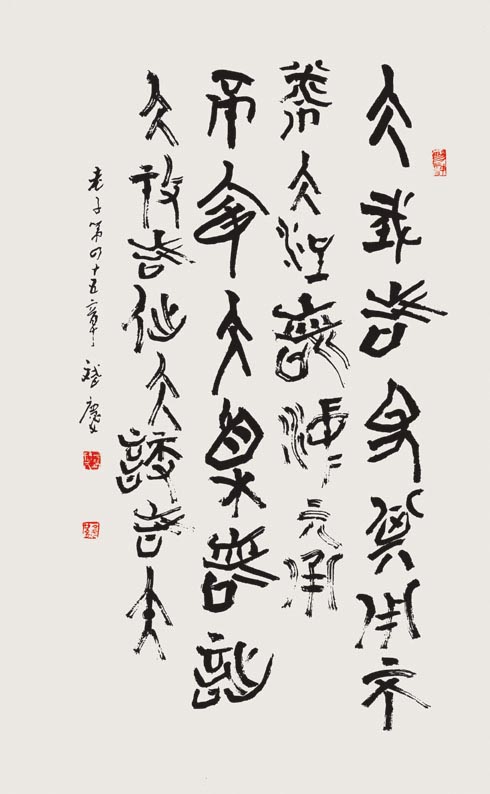 大成若缺其用不
弊大盈若沖其用
不窮大直若詘
大巧若拙大辯若訥
老子第四十五章 慶